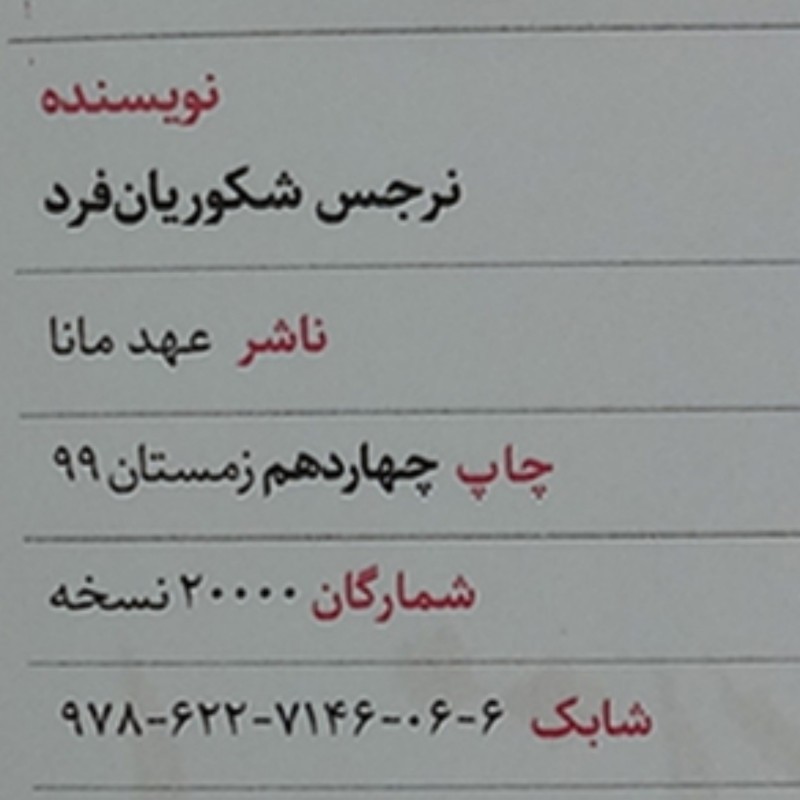 نویسنده
نرجس شکوریان‌فرد
ناشر عهد مانا
چاپ چهاردهم زمستان ۹۹
شمارگان ۲۰۰۰۰ نسخه
شابک ۹۷۸-۶۲۲-۷۱۴۶-۰۶-۶